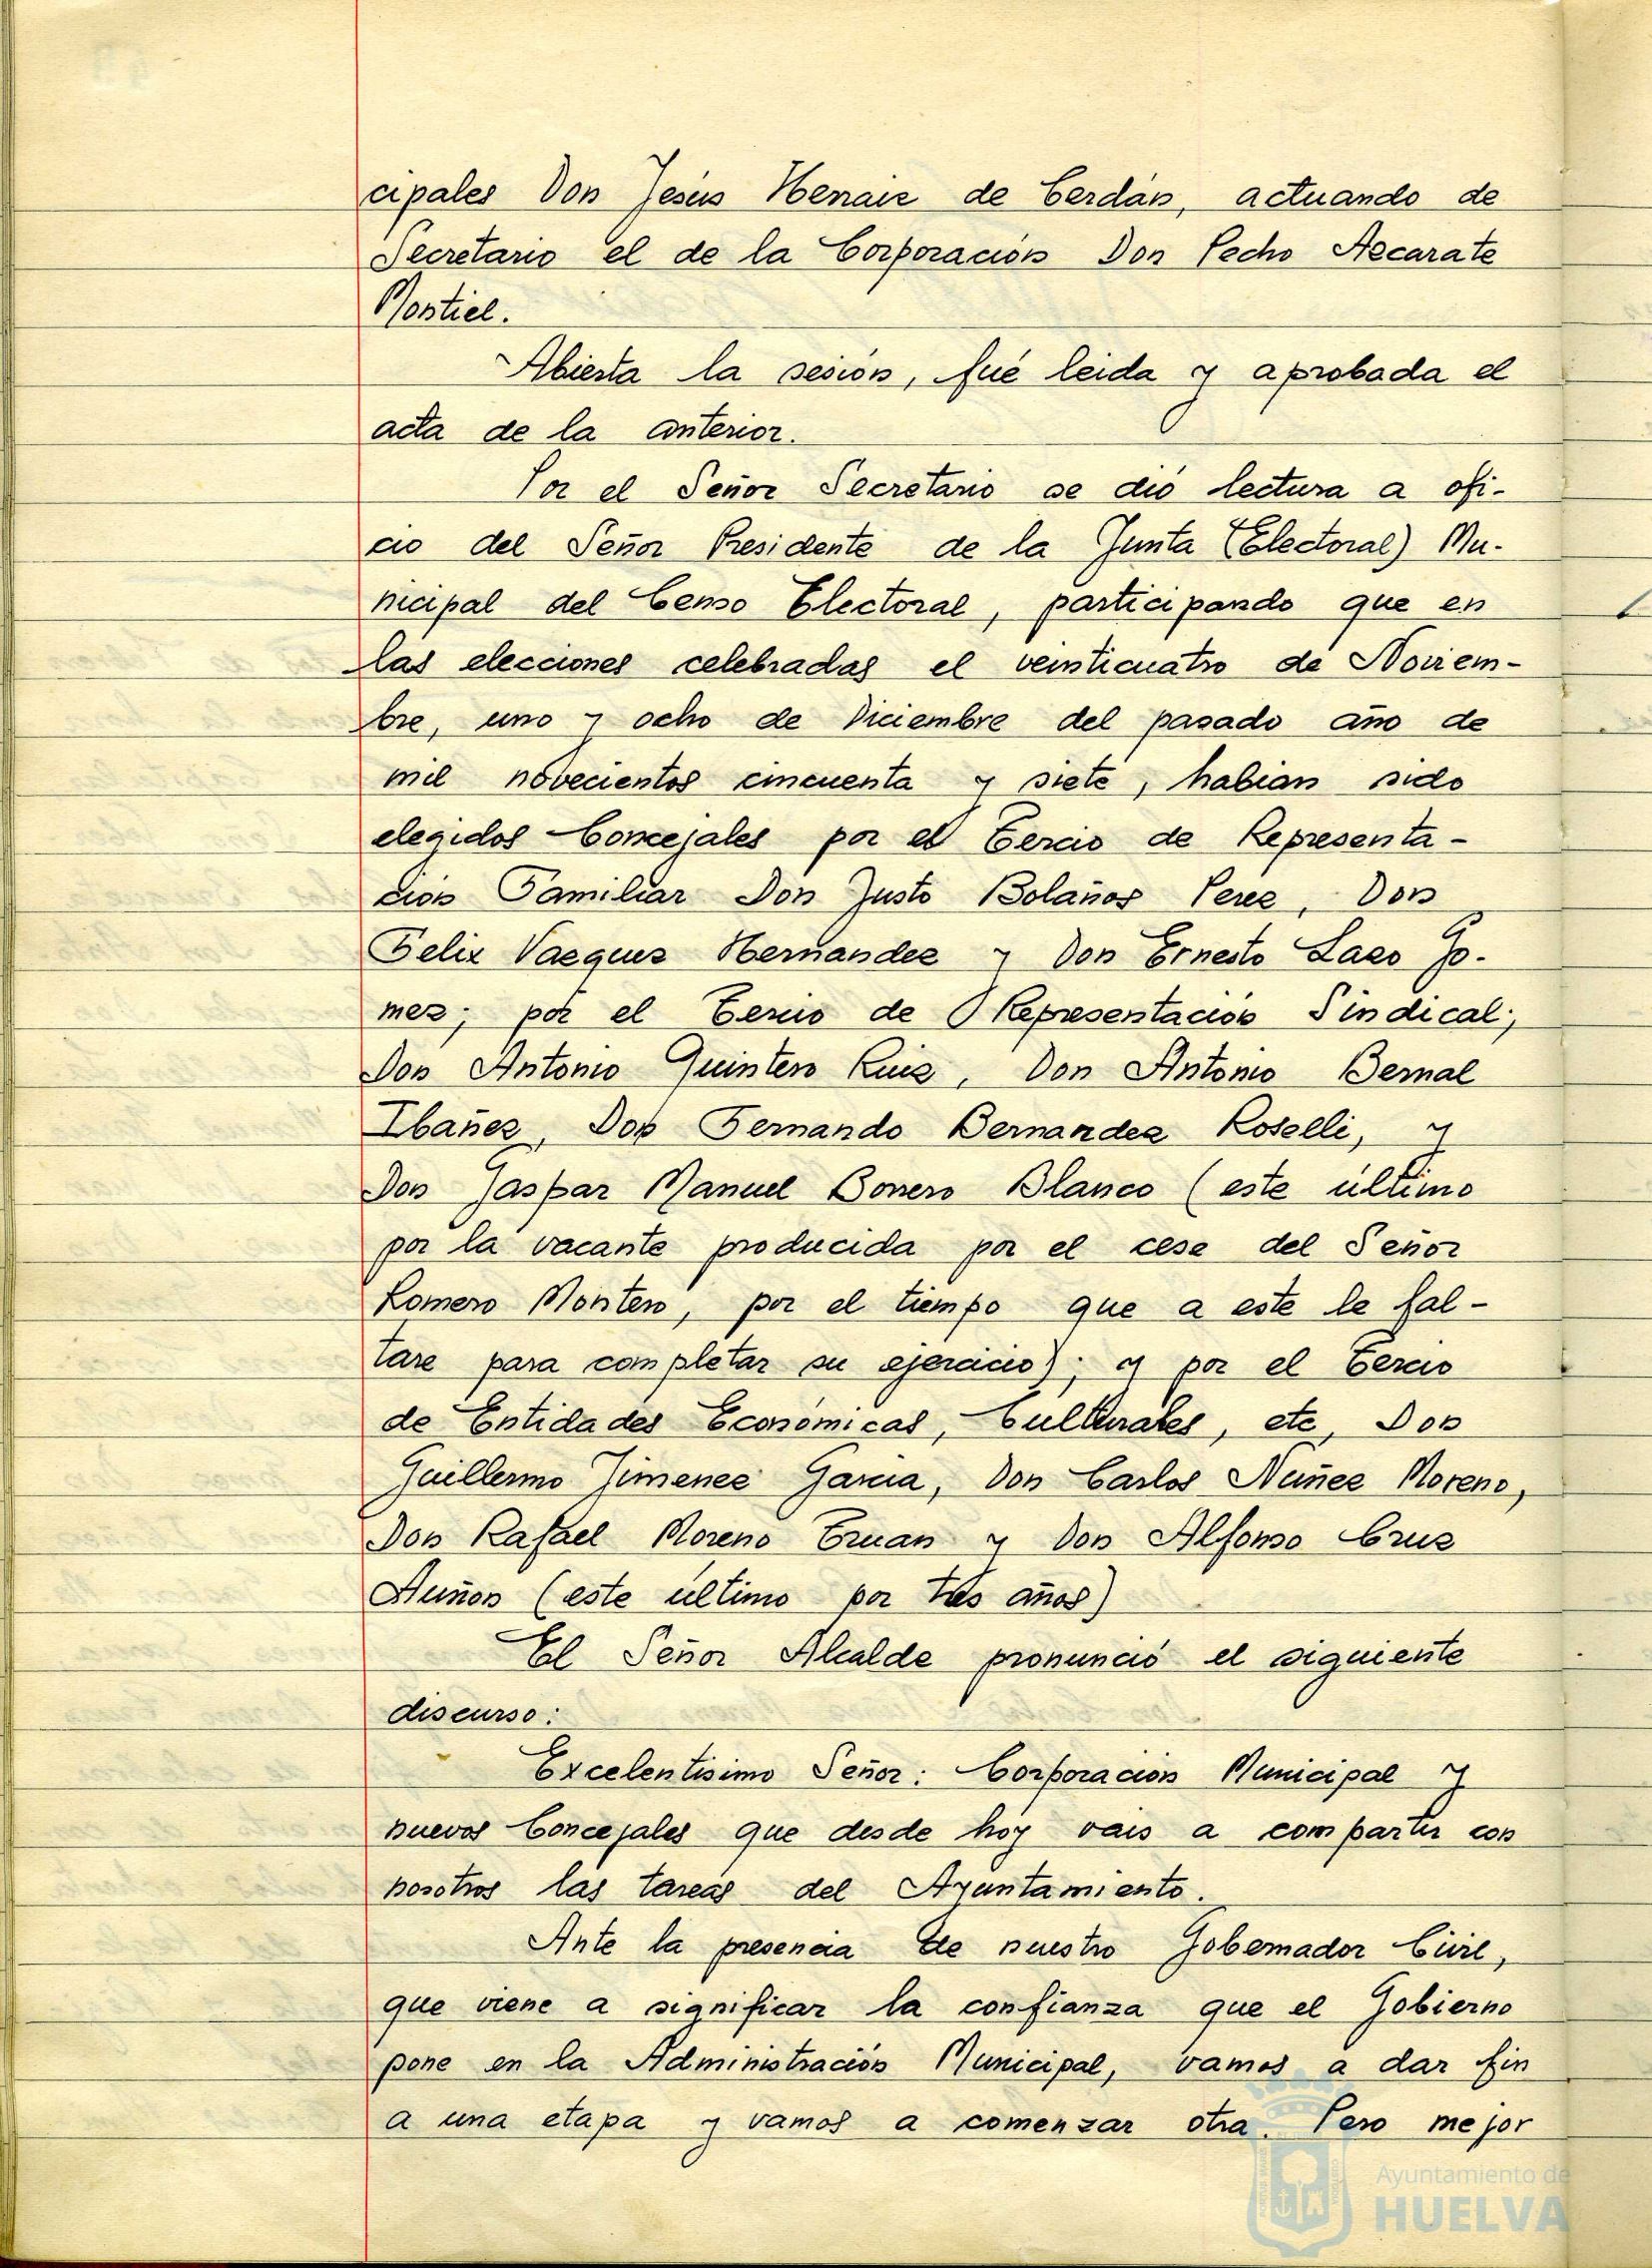 cipales Don Jesús Henaiz de Cerdán, actuando de
Secretario el de la Corporación Don Pecho Azcarate
Montiel.
Abierta la sesión, fué leida y aprobada el
acta de la anterior.
Por el Señor Secretario se dió lectura a ofi-
cio del Señor Presidente de la Junta (Electoral) Mu-
nicipal del Censo Electoral, participando que en
las elecciones celebradas el veinticuatro de Noviem-
bre, uno y ocho de Diciembre del pasado año de
mil novecientos cincuenta y siete, habian sido
elegidos Concejales por el Tercio de Representa-
ción Familiar Don Justo Bolaños Perez, Don
Felix Vazquez Hernandez y Don Ernesto Lazo Go-
mez; por el Tercio de Representación Sindical,
Don Antonio Quintero Ruiz, Don Antonio Bernal
Ibañez, Don Fernando Bernandez Roselli, y
Don Gaspar Manuel Borrero Blanco (este último
por la vacante producida por el cese del Señor
Romero Montero, por el tiempo que a este le fal-
tare para completar su ejercicio); y por el Tercio
de Entidades Económicas, Culturales, etc, Don
Guillermo Jimenez Garcia, Don Carlos Nuñez Moreno,
Don Rafael Moreno y Don Alfonso Cruz
Auñon (este último por tres años)
El Señor Alcalde pronunció el siguiente
discurso:
Excelentisimo Señor: Corporación Municipal y
nuevos Concejales que desde hoy vais a compartir con
nosotros las tareas del Ayuntamiento.
Ante la presencia de nuestro Gobernador Civil,
que viene a significar la confianza que el Gobierno
pone en la Administración Municipal, vamos a dar fin
a una etapa y vamos a comenzar otra. Pero mejor
Ayuntamiento de
HUELVA